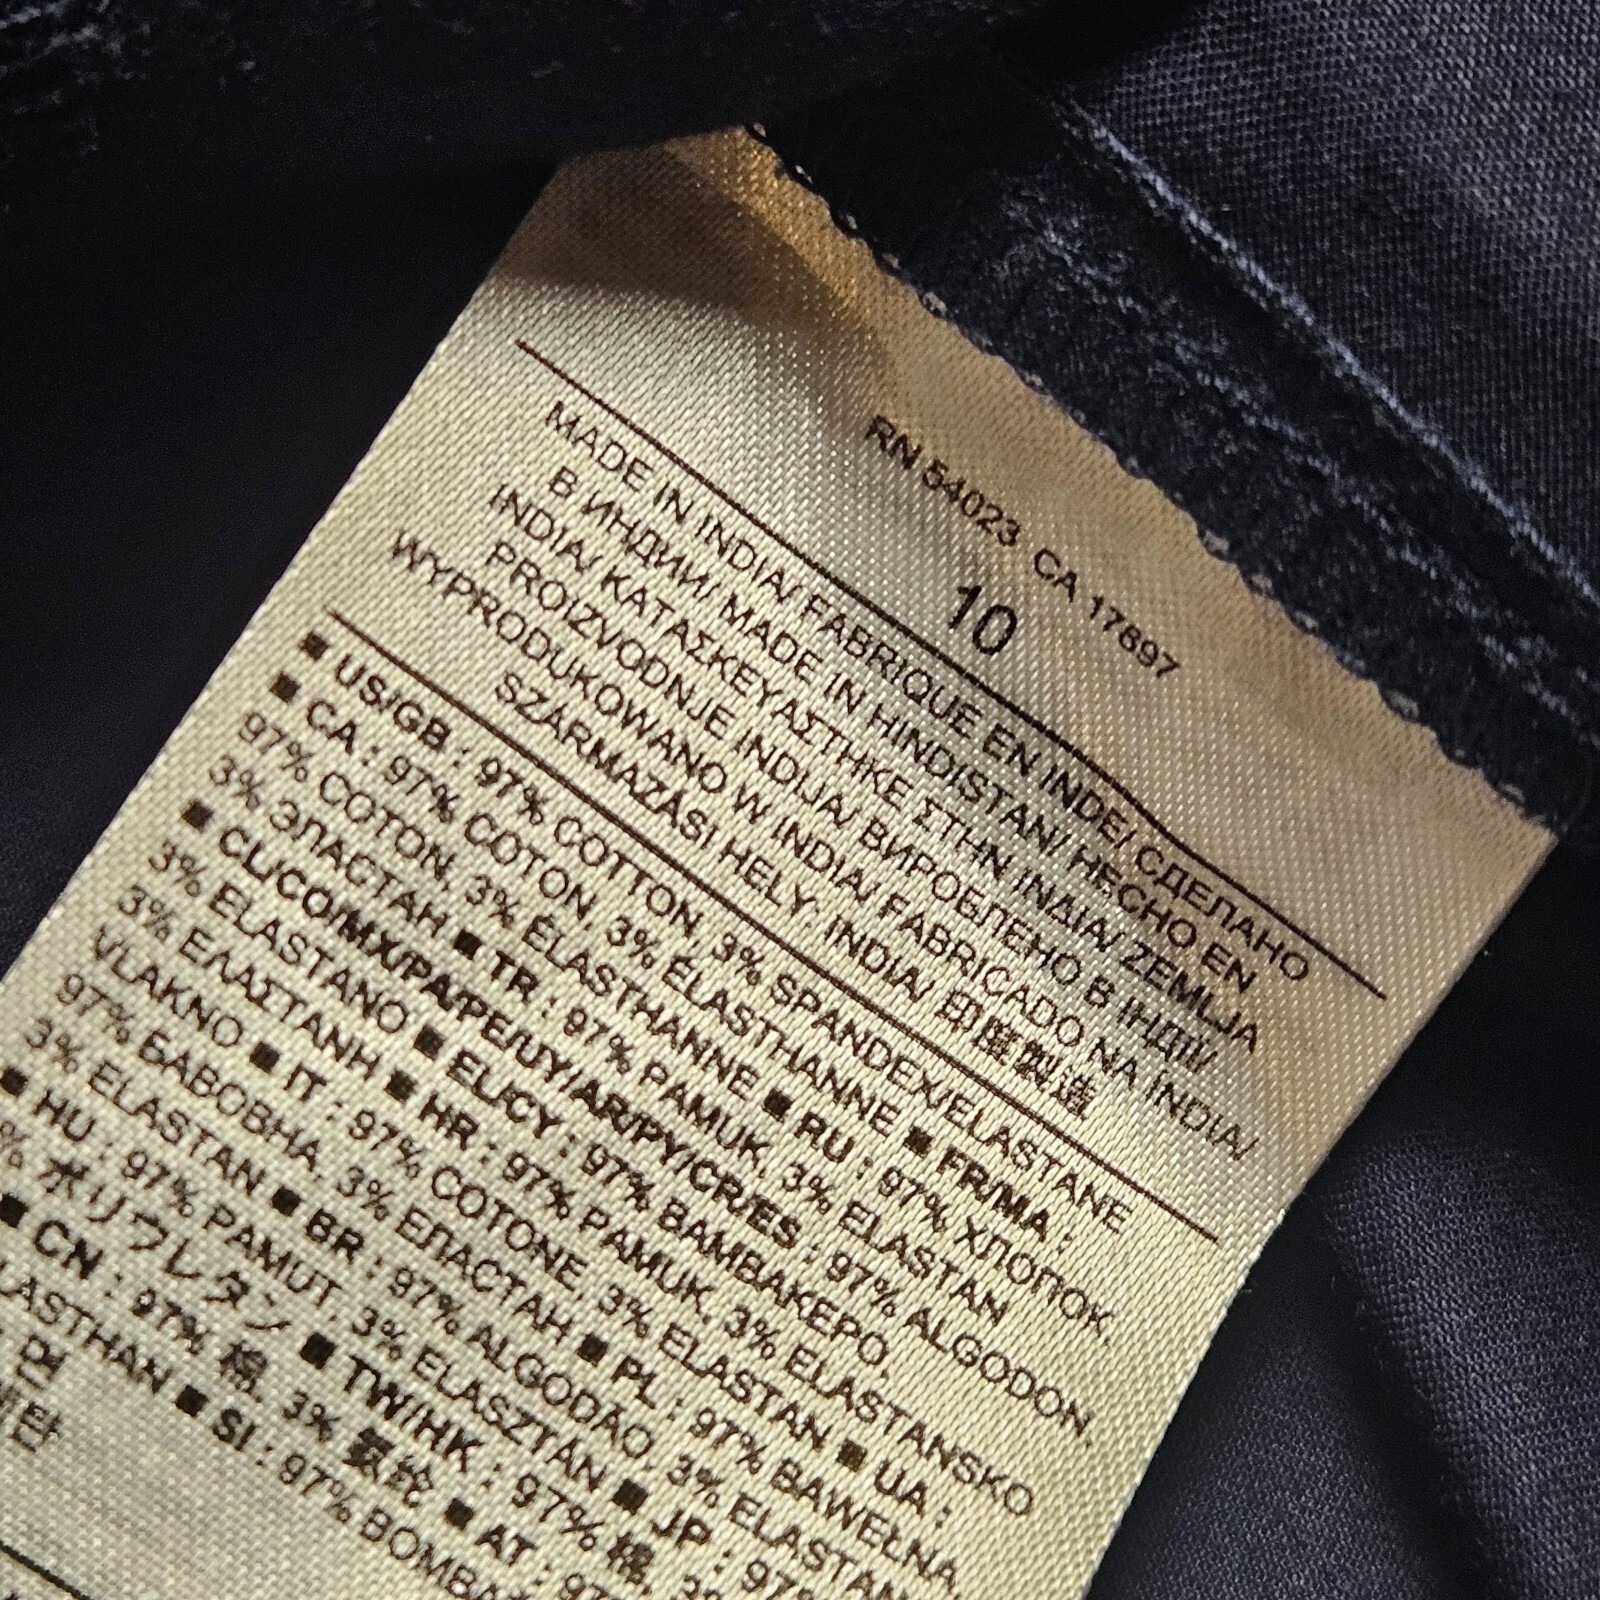 RN 54023 CA 17897
10
MADE IN INDIA/ FABRIQUE EN INDE/ СДЕЛАНО
В ИНДИИ/ MADE IN HINDISTAN/ HECHO EN
INDIA/ ΚΑΤΑΣΚΕΥΑΣΤΗΚΕ ΣΤΗΝ ΙΝΔΙΑ/ ZEMLJA
PROIZVODNJE INDIJA/ ВИРОБЛЕНО В ІНДІЇ/
WYPRODUKOWANO W INDIA/ FABRICADO NA ÍNDIA/
SZÁRMAZÁSI HELY: INDIA/ 印度製造
■ US/GB : 97% COTTON, 3% SPANDEX/ELASTANE
■ CA : 97% COTON, 3% ÉLASTHANNE ■ FR/MA :
97% COTON, 3% ÉLASTHANNE ■ RU : 97% ХЛОПОК,
3% ЭЛАСТАН ■ TR : 97% PAMUK, 3% ELASTAN
■ CL/CO/MX/PA/PE/UY/AR/PY/CR/ES : 97% ALGODON,
3% ELASTANO ■ EL/CY : 97% ΒΑΜΒΑΚΕΡΟ,
3% ΕΛΑΣΤΑΝΗ ■ HR : 97% PAMUK, 3% ELASTANSKO
VLAKNO ■ IT : 97% COTONE, 3% ELASTAN ■ UA :
97% БАВОВНА, 3% ЕЛАСТАН ■ PL : 97% BAWEŁNA,
3% ELASTAN ■ BR : 97% ALGODÃO, 3% ELASTAN
■ HU : 97% PAMUT, 3% ELASZTÁN ■ JP : 97%
% ポリウレタン ■ TW/HK : 97% 棉,
■ CN : 97% 棉, 3% 氨纶 ■ AT : 97%
LASTHAN ■ SI : 97% BOMBA
면
탄